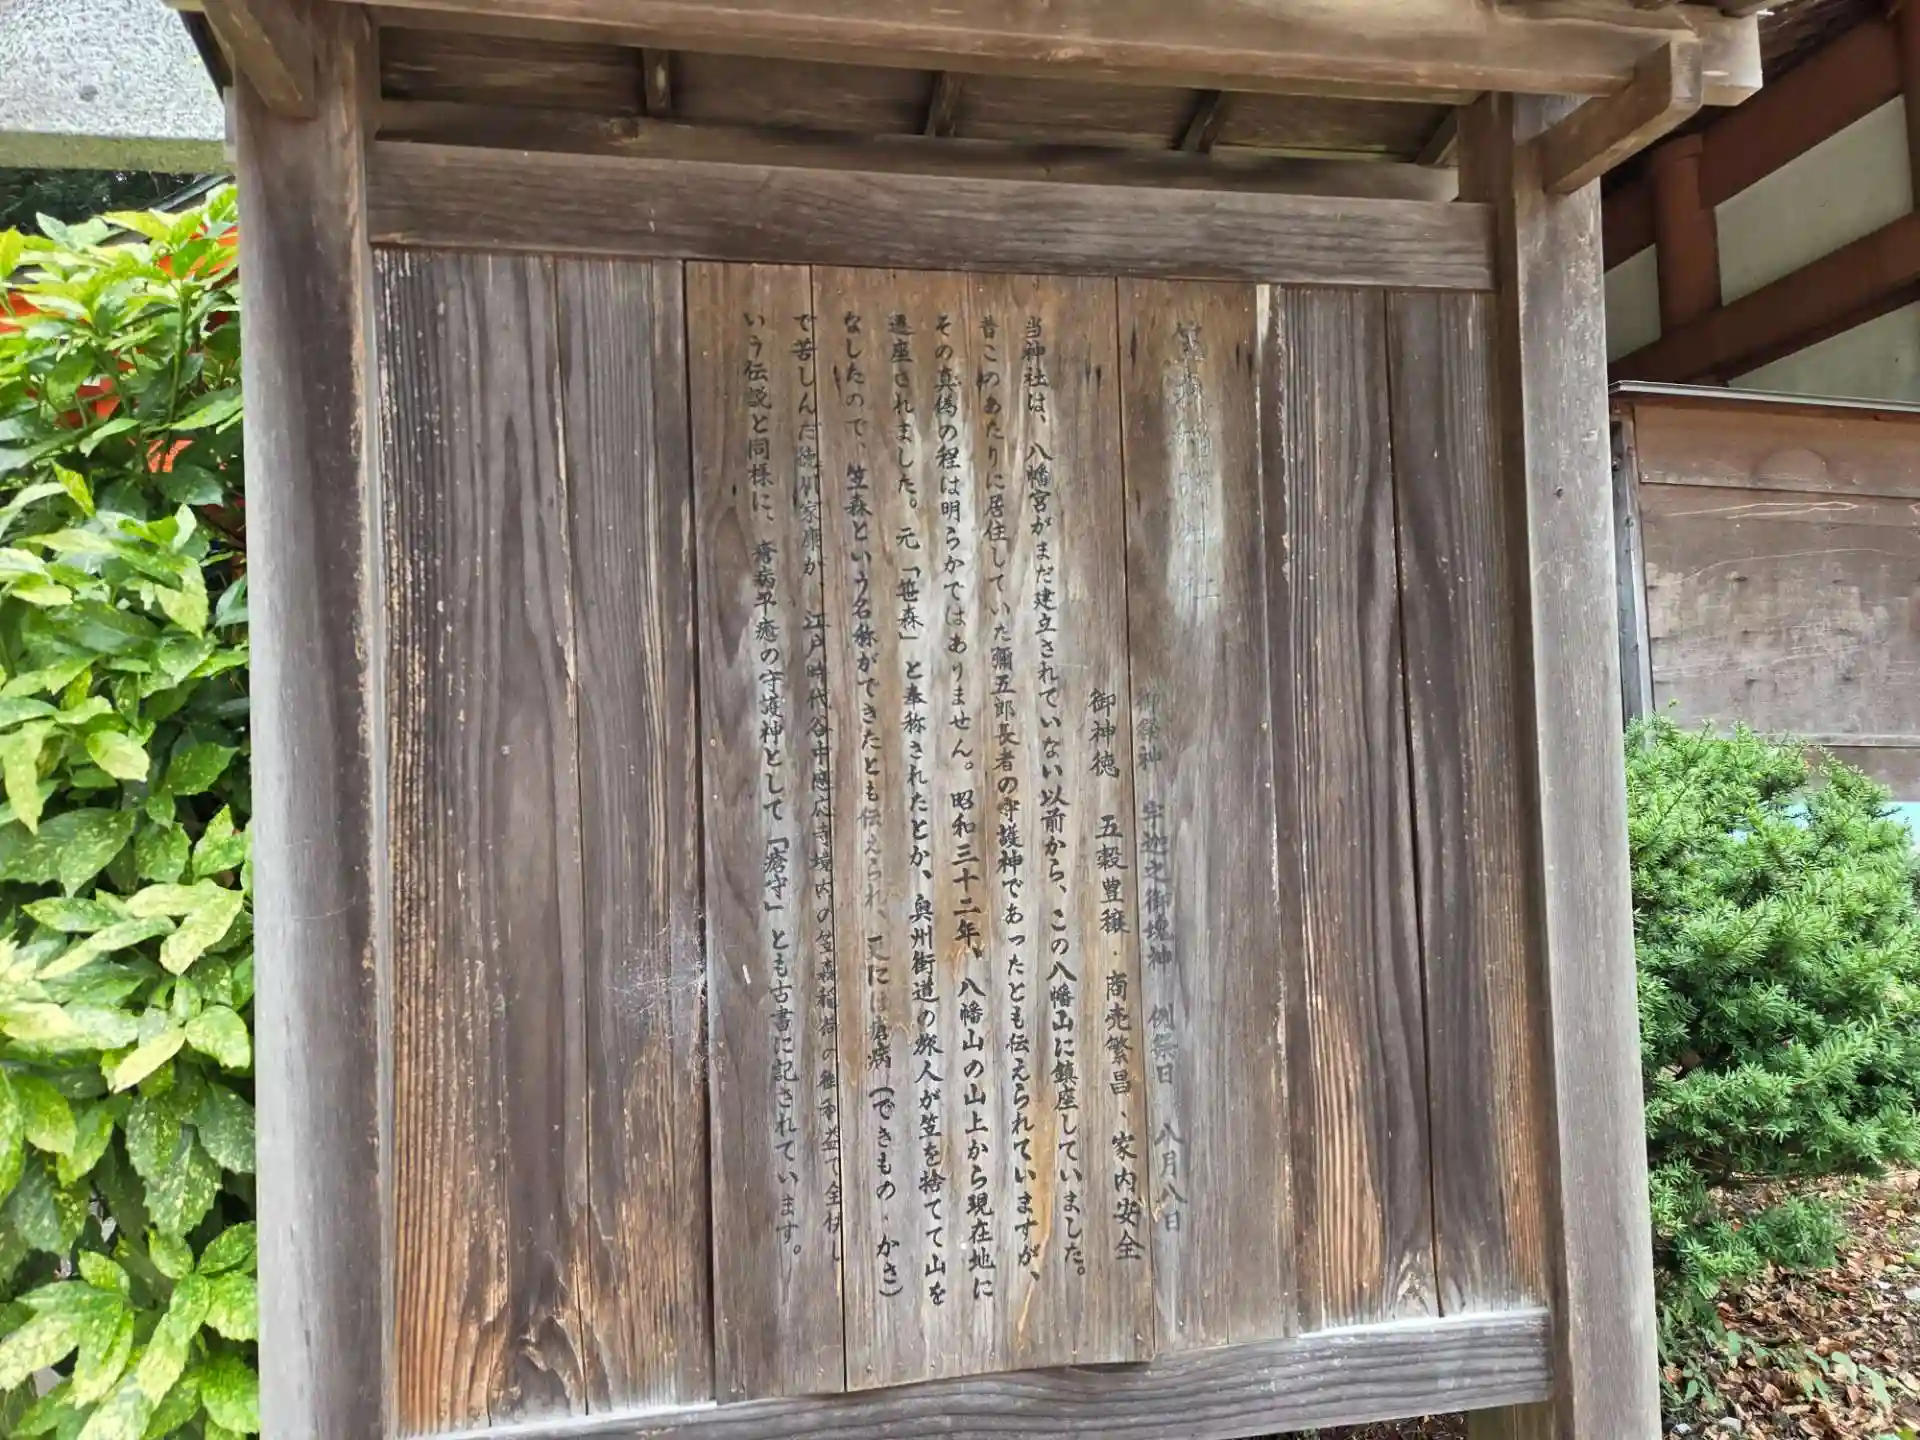 笠森稲荷神社
御祭神 宇迦之御魂神 例祭日 八月八日
御神徳 五穀豊穣・商売繁昌、家内安全
当神社は、八幡宮がまだ建立されていない以前から、この八幡山に鎮座していました。
昔このあたりに居住していた彌五郎長者の守護神であったとも伝えられていますが、
その真偽の程は明らかではありません。昭和三十二年、八幡山の山上から現在地に
遷座されました。元「笹森」と奉称されたとか、奥州街道の旅人が笠を捨てて山を
なしたので、笠森という名称ができたとも伝えられ、又には瘡病(できもの・かさ)
で苦しんだ徳川家康が、江戸時代谷中感応寺境内の笠森稲荷の御利益で全快し
いう伝説と同様に、瘡病平癒の守護神として「瘡守」とも古書に記されています。